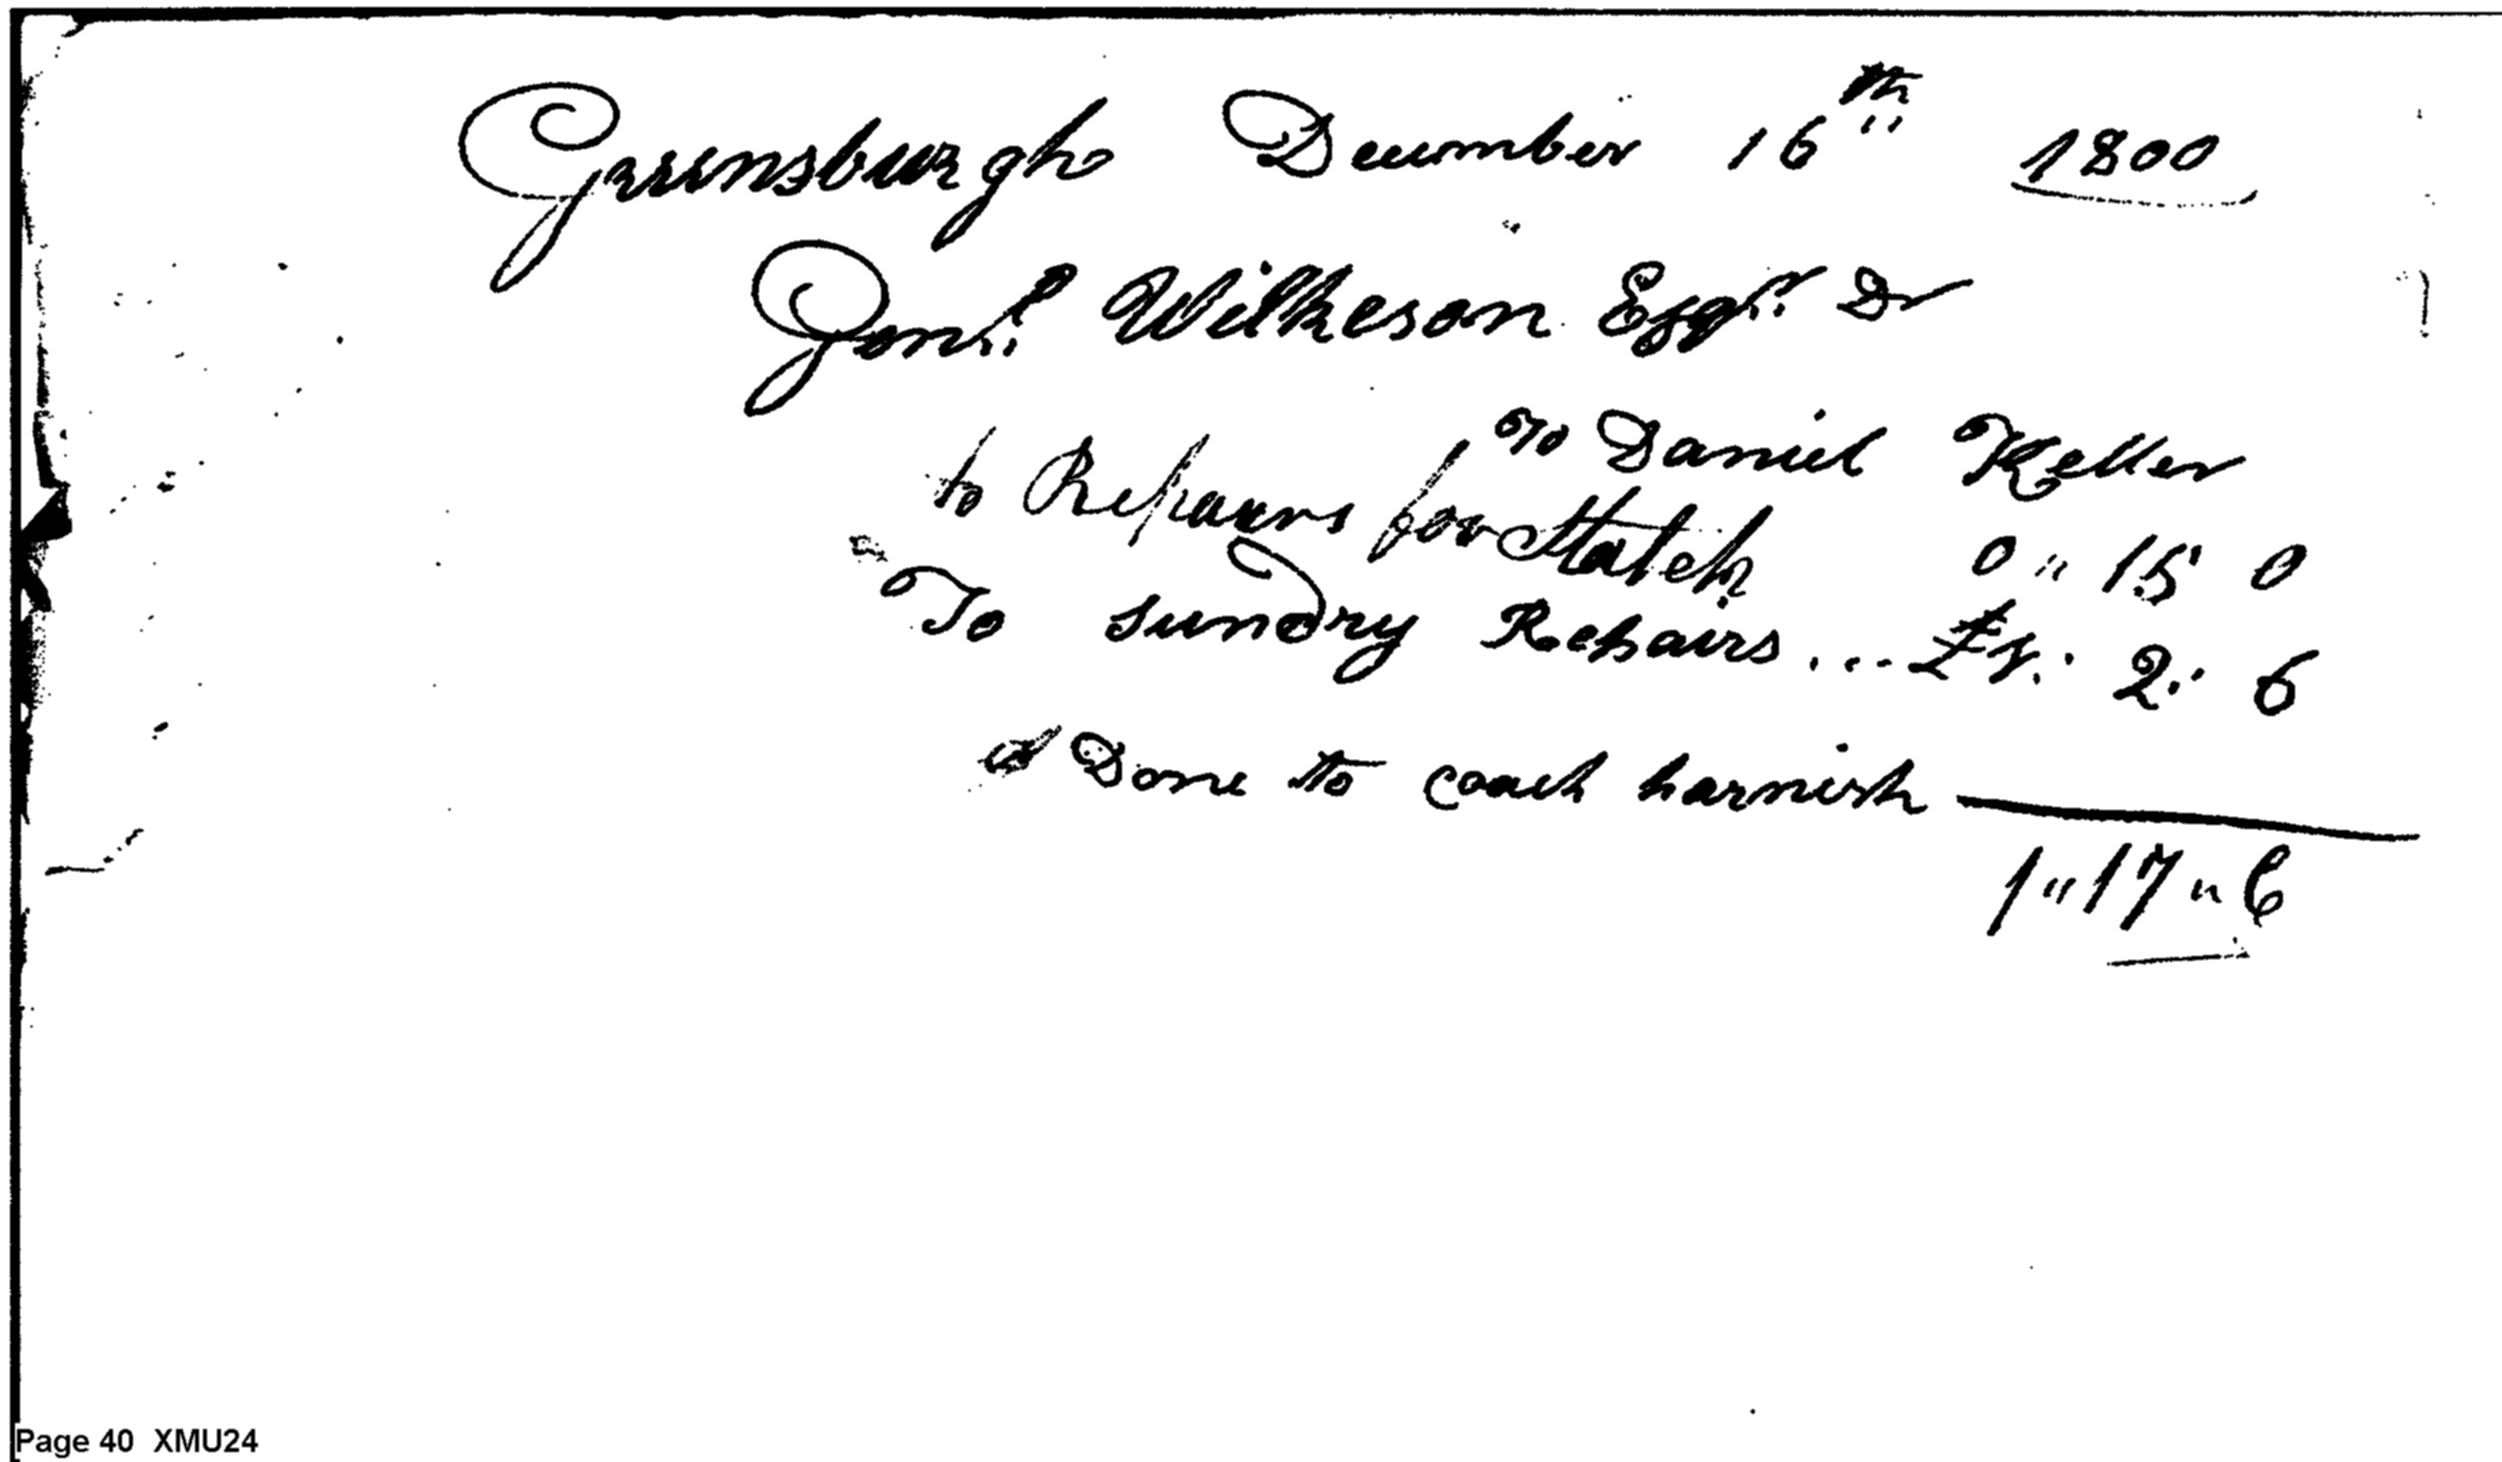 Greensburgh December 16th 1800
Genl. Wilkeson Esqr. Dr
To Daniel Keller
to Repairs for 0 " 15 0
To sundry Repairs ... £1. 2 " 6
Done to coach harnish
1 " 17 " 6
Page 40 XMU24